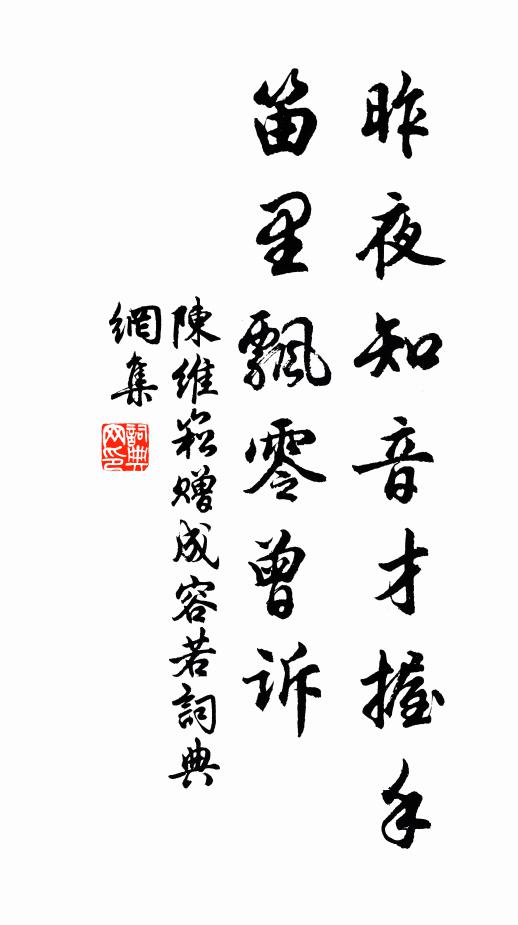 昨夜知音才握手
笛里飄零曾訴
陳維崧贈成容若詞典
網集
詞典
网印